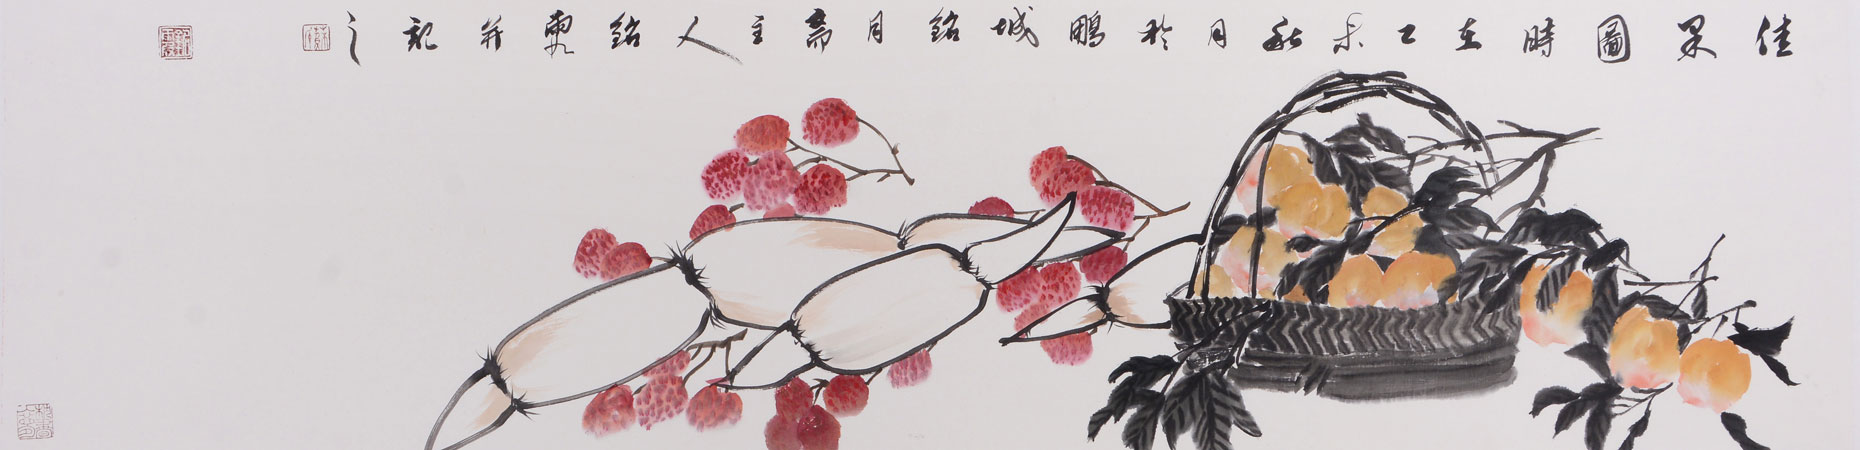 佳果圖時在乙未秋月於鵬城銘月齋主人銘并記之